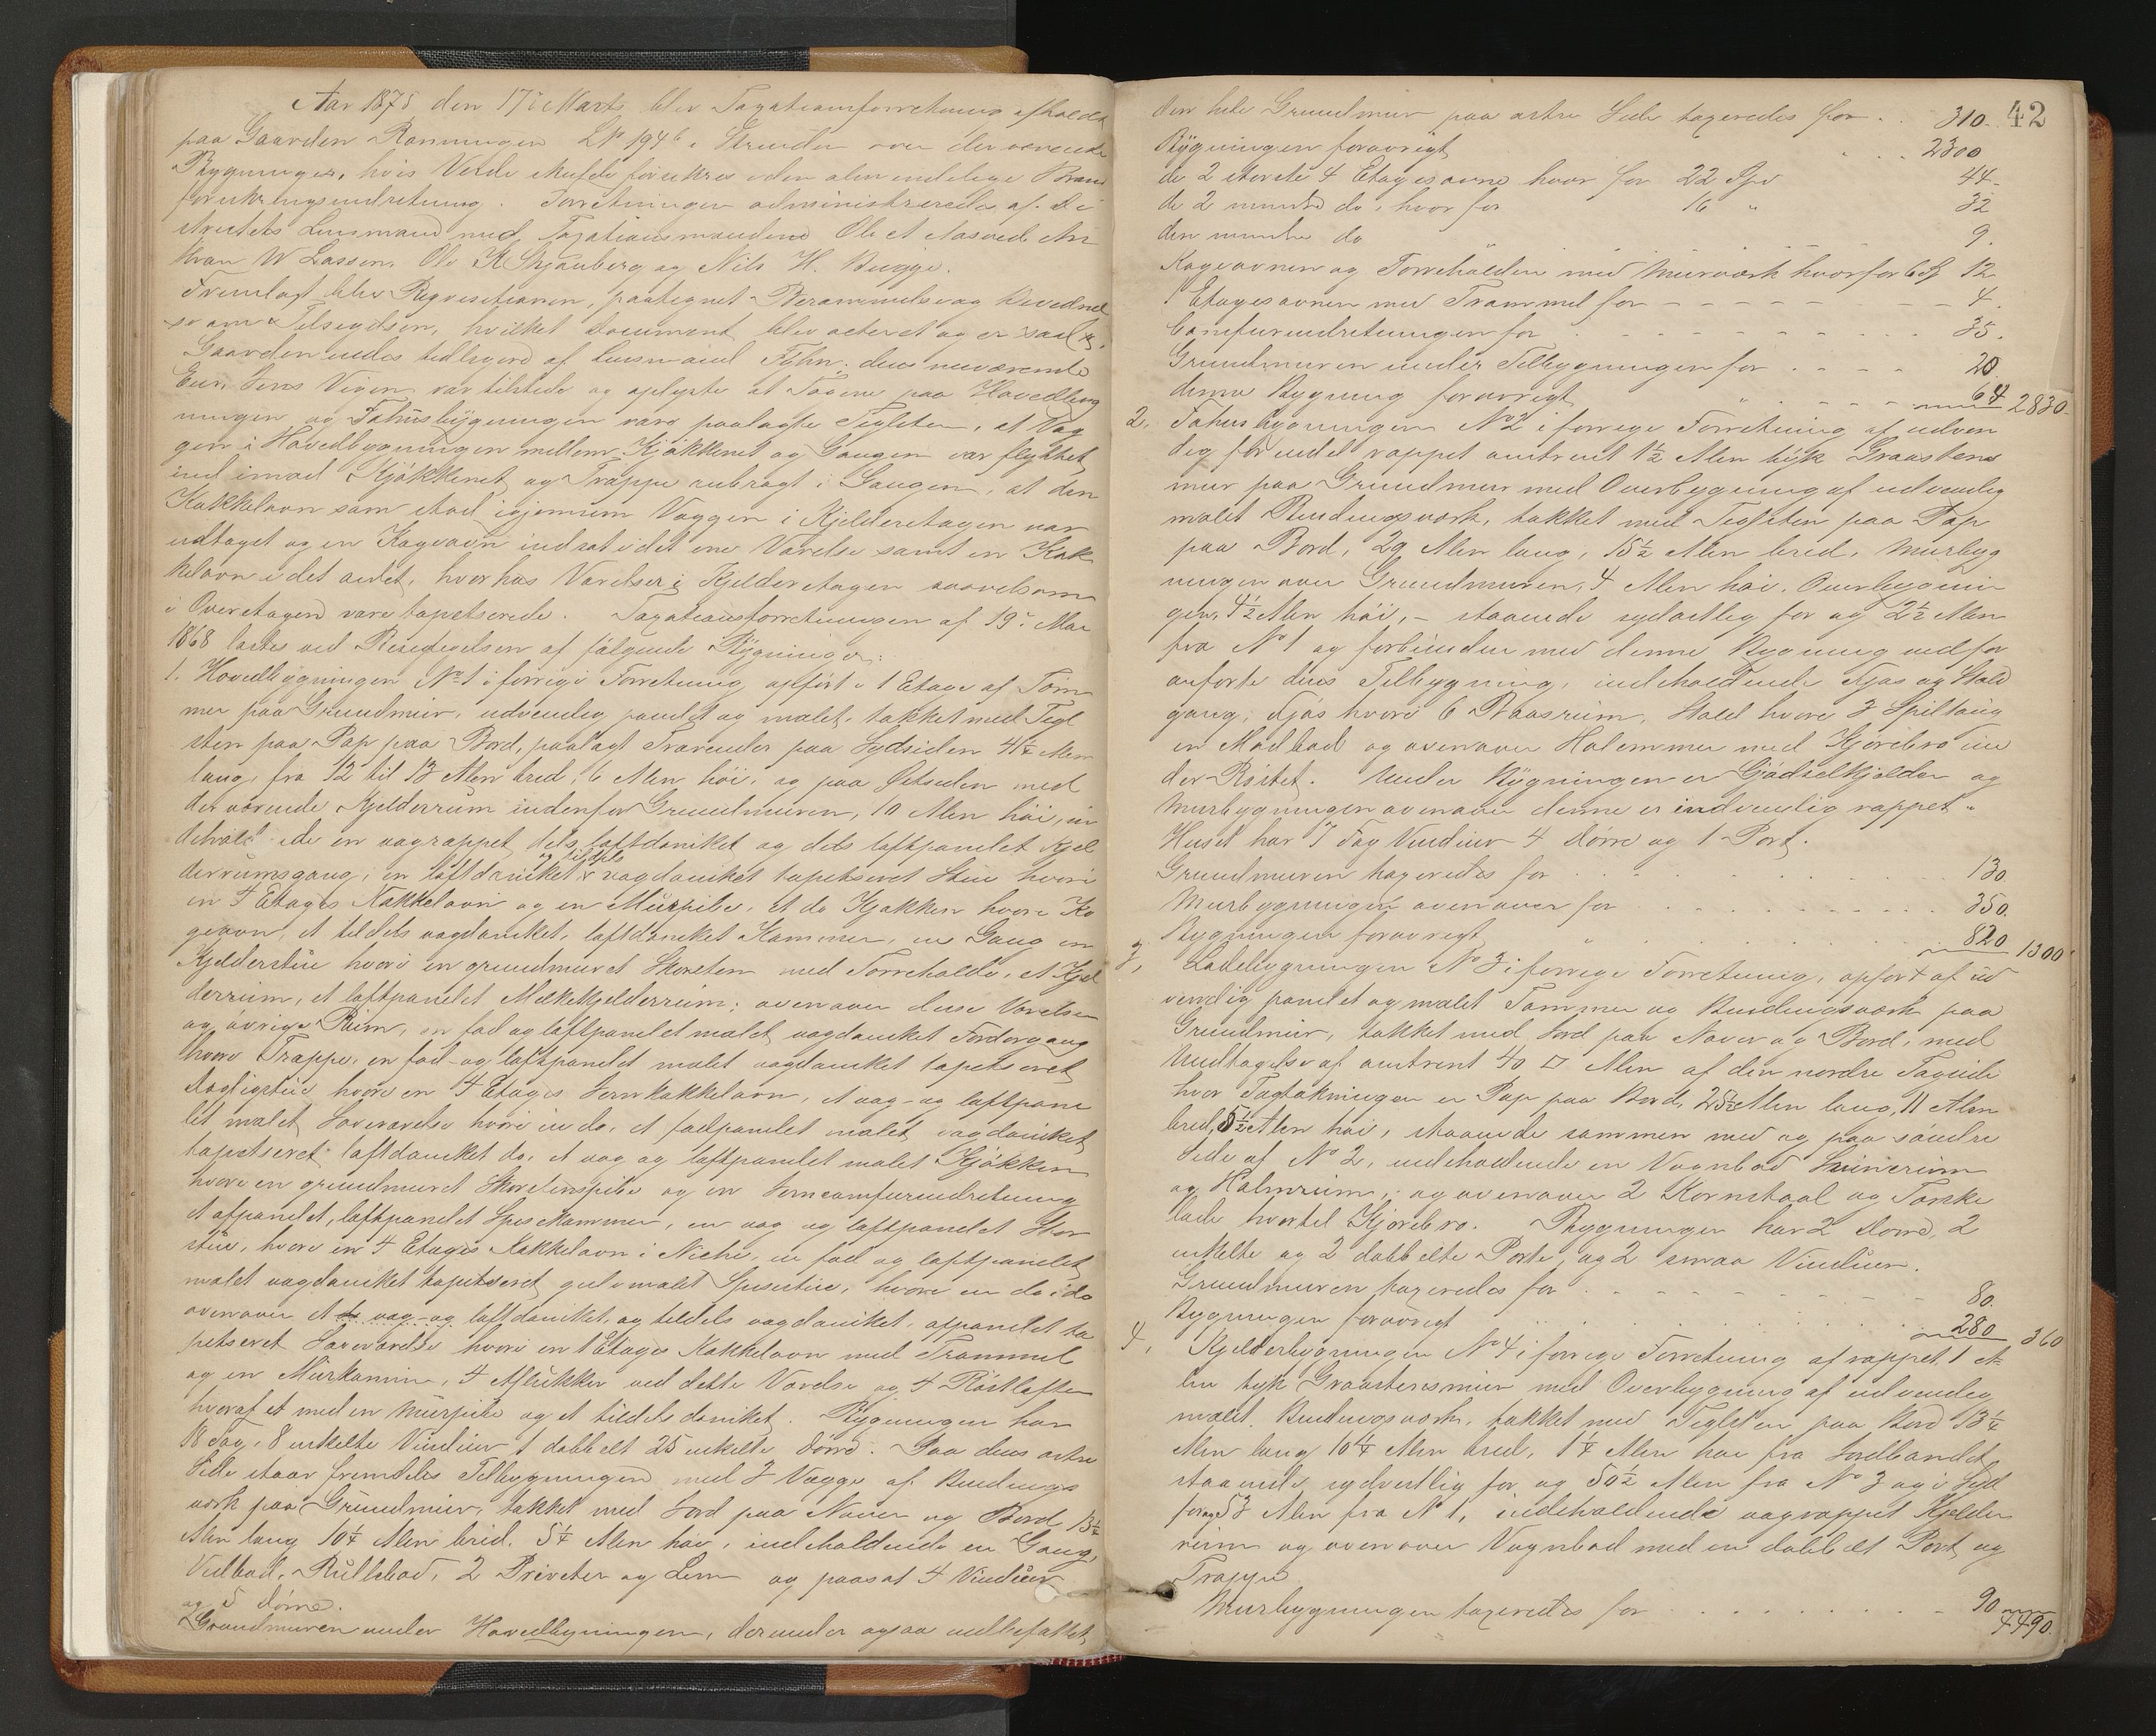 Aar 1875 den 17de Marts blev Taxationsforretning afholdt
paa Gaarden Ronningen LNo 194b i Strinden over derværende
Bygninger, hvis Verdi skulde forsikres i den almindelige Brand
forsikringsindretning. Forretningen administreredes af Di
strictets Lensmand med Taxationsmændene Ole A Aasved
W Lassen, Ole K Skjauberg og Nils H. Bugge.
Fremlagt blev Reqvisitionen, paategnet Berammelse og
som Tilsigelsen, hvilket Document blev acteret og er saal.
Gaarden eiedes tidligere af Lensmand Føhn; dens nuværende
Eier Jens Vigen var tilstede og oplyste at Tagene paa Hovedbyg
ningen og Fæhusbygningen vare paalagte Teglsten, at Væg
gen i Hovedbygningen mellem Kjøkkenet og Gangen var flyttet
ind imod Kjøkkenet og Trappe anbragt i Gangen, at den
Kakkelovn som stod igjennem Væggen i Kjelderetagen var
udtaget og en Kogeovn indsat i det ene Værelse samt en Kak
kelovn i det andet, hvorhos Værelser i Kjelderetagen saavelsom
i Overetagen vare tapetserede. Taxationsforretningen af 19de Mai
1868 lastes ved Besigtigelsen af følgende Bygninger:
1. Hovedbygningen No 1 i forrige Forretning opført i 1 Etage af Tøm
mer paa Grundmur, udvendig panelet og malet, tækket med Tegl
sten paa Pap paa Bord, paalagt Travender paa Sydsiden 41½ Alen
lang, fra 12 til 13 Alen bred, 6 Alen høi, og paa Østsiden med
derværende Kjelderrum indenfor Grundmuren, 10 Alen høi, in
deholdende en vægrappet dels loftdansket og dels loftpanelet Kjel
derrumsgang, en loftdansket og tildels vægdansket tapetseret Stue hvori
en 4 Etages Kakkelovn og en Murpibe, et do Kjøkken hvori Ko
geovn, et tildels vægdansket, loftdansket Kammer, en Gang en
Kjelderstue hvori en grundmuret Skorsten med Tørreholde, et Kjel
derrum, et loftpanelet Melkekjelderrum; ovenover disse Værelser
og øvrige Rum, en fod og loftpanelet malet vægdansket Fordørgang
hvori Trappe, en fod- og loftpanelet malet vægdansket tapetseret
Dagligstue hvori en 4 Etages Jernkakkelovn, et væg- og loftpane
let malet Soveværelse hvori en do, et fodpanelet malet vægdansket
tapetseret loftdansket do, et væg og loftpanelet malet Kjøkken
hvori en grundmuret Skorstenspibe og en Jerncomfurindretning
et afpanelet, loftpanelet Spisekammer, en væg og loftpanelet Stor
stue, hvori en 4 Etages Kakkelovn i Niche, en fod og loftpanelet
malet vægdansket tapetseret gulvmalet Spisestue, hvori en do i do
ovenover et do væg- og loftdansket, og tildels vægdansket, afpanelet ta
petseret Soveværelse hvori en 1 Etages Kakkelovn med Trommel
og en Murkamin, 4 Aflukker ved dette Værelse og 4 Røstlofter
hvoraf et med en Murpibe og et tildels dansket. Bygningen har
18 Fag, 8 enkelte Vinduer 1 dobbelt 25 enkelte Dørre. Paa dens østre
Side staar fremdeles Tilbygningen med 3 Vægge af Bindings
værk paa Grundmur, tækket med Jord paa Næver og Bord 13½
Alen lang 10¼ Alen bred, 5¼ Alen høi, indeholdende en Gang,
Vedbod, Rullebod, 2 Priveter og Lem og paasat 4 Vinduer
og 5 Dørre.
Grundmuren under Hovedbygningen, derunder ogsaa indbefattet
42
den hele Grundmur paa østre Side taxeredes for . . 310.
Bygningen forøvrigt . . . 2300
de 2 største 4 Etagesovne hver for 22 Spd 44.
de 2 mindre do, hver for 16 " 32
den mindre do " 9.
Kogeovnen og Tørreholden med Murværk hver for 6 Spd 12
1 Etagesovnen med Trommel for 4.
Comfurindretningen for 35.
Grundmuren under Tilbygningen for 20
denne Bygning forøvrigt " 64 2830.
2. Fæhusbygningen No 2 i forrige Forretning af udven
dig for endel rappet omtrent 1½ Alen tyk Graastens
mur paa Grundmur med Overbygning af udvendig
malet Bindingsværk, tækket med Teglsten paa Pap
paa Bord, 29 Alen lang, 15½ Alen bred, Murbyg
ningen over Grundmuren, 4 Alen høi, Overbygnin
gen, 4½ Alen høi, - staaende sydøstlig for og 2½ Alen
fra No 1 og forbunden med denne Bygning ved for
anførte dens Tilbygning, indeholdende Fjøs og Stald
gang, Fjøs hvori 6 Baasrum, Stald hvori 3 Spiltoug
en Mødbod og ovenover Halemmer med Kjørebro un
der Røstet. Under Bygningen er Gjødselkjelder og
Murbygningen ovenover denne er indvendig rappet.
Huset har 7 Fag Vinduer 4 Dørre og 1 Port.
Grundmuren taxeredes for 130
Murbygningen ovenover for 350.
Bygningen forøvrigt " 820 1300
3, Ladebygningen No 3 i forrige Forretning, opført af ud
vendig panelet og malet Tømmer og Bindingsværk paa
Grundmur, tækket med Jord paa Næver og Bord, med
Undtagelse af omtrent 40 □ Alen af den nordre Tagside
hvor Tagtækningen er Pap paa Bord, 25½ Alen lang, 11 Alen
bred, 5½ Alen høi, staaende sammen med og paa søndre
Side af No 2, indeholdende en Vognbod Svinerum
og Halmrum, og ovenover 2 Kornstaal og Tærske
lade hvortil Kjørebro. Bygningen har 2 Dørre, 2
enkelte og 2 dobbelte Porte, og 2 smaa Vinduer.
Grundmuren taxeredes for 80.
Bygningen forøvrigt 280 360
4, Kjelderbygningen No 4 i forrige Forretning af rappet 1 A
len tyk Graastensmur med Overbygning af udvendig
malet Bindingsværk, tækket med Teglsten paa Bord 13¼
Alen lang 10¼ Alen bred, 1¼ Alen høi fra Jordbandet
staaende sydvestlig for og 50½ Alen fra No 3 og i Syd
for og 53 Alen fra N 1, indeholdende vægrappet Kjelder
rum og ovenover Vognbod med en dobbelt Port og
Trappe
Murbygningen taxeredes for 90
4490.